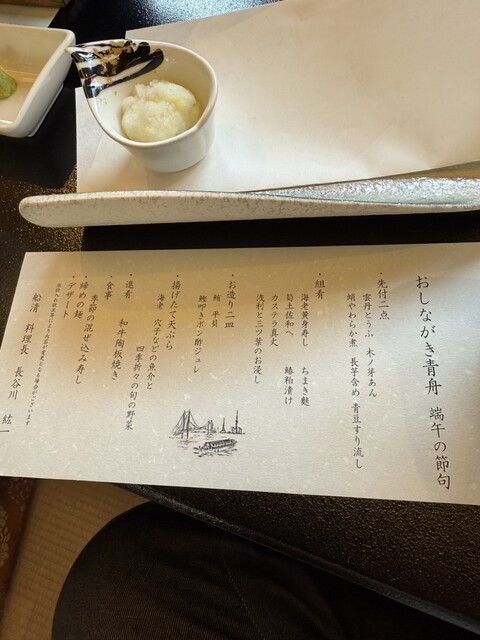 おしながき青舟 端午の節句
・先付二点
雲丹とうふ 木ノ芽あん
蛸やわらか煮 長芋含め 青豆すり流し
・組肴
海老黄身寿し ちまき麩
筍土佐和へ 鰆粕漬け
カステラ真丈
浅利と三ツ葉のお浸し
・お造り二皿
鮪 平貝
鰹叩きポン酢ジュレ
・揚げたて天ぷら
海老 穴子などの魚介と
四季折々の旬の野菜
・進肴
和牛陶板焼き
・食事
季節の混ぜ込み寿し
・締めの麺
・デザート
船清 料理長 長谷川 紘一